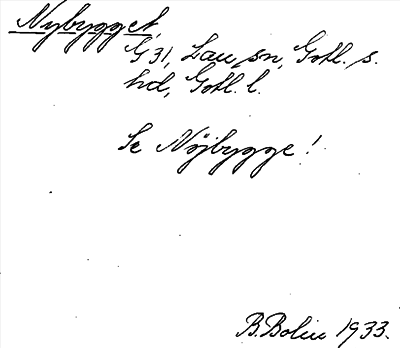 Nybygget,
G 31, Lau sn, Gotl. s.
hd, Gotl. l.
Se Nöjbygge!
B. Bolin 1933.